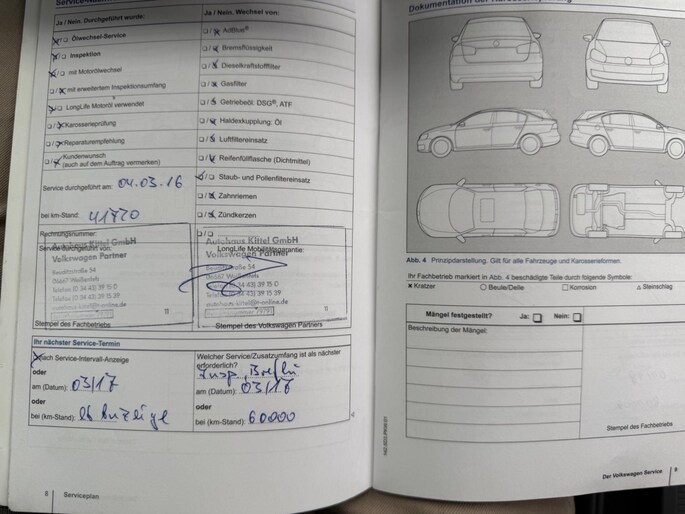 Ja / Nein. Durchgeführt wurde:
Ölwechsel-Service
Inspektion
mit Motorölwechsel
mit erweitertem Inspektionsumfang
LongLife Motoröl verwendet
Karosserieprüfung
Reparaturempfehlung
Kundenwunsch
(auch auf dem Auftrag vermerken)
Service durchgeführt am: 04.03.16
bei km-Stand: 41720
Rechnungsnummer:
Service durchgeführt von:
Autohaus Kittel GmbH
Volkswagen Partner
Stempel des Fachbetriebs
Ja / Nein. Wechsel von:
AdBlue®
Bremsflüssigkeit
Dieselkraftstofffilter
Gasfilter
Getriebeöl: DSG®, ATF
Haldexkupplung: Öl
Luftfiltereinsatz
Reifenfüllflasche (Dichtmittel)
Staub- und Pollenfiltereinsatz
Zahnriemen
Zündkerzen
LongLife Mobilitätsgarantie:
Autohaus Kittel GmbH
Volkswagen Partner
Stempel des Volkswagen Partners
Ihr nächster Service-Termin
nach Service-Intervall-Anzeige
oder
am (Datum): 03/17
oder
bei (km-Stand):
Welcher Service/Zusatzumfang ist als nächster
erforderlich?
am (Datum): 03/18
oder
bei (km-Stand): 60000
8 Serviceplan
Abb. 4 Prinzipdarstellung. Gilt für alle Fahrzeuge und Karosserieformen.
Ihr Fachbetrieb markiert in Abb. 4 beschädigte Teile durch folgende Symbole:
× Kratzer ○ Beule/Delle □ Korrosion △ Steinschlag
Mängel festgestellt? Ja: Nein:
Beschreibung der Mängel:
Stempel des Fachbetriebs
Der Volkswagen Service 9